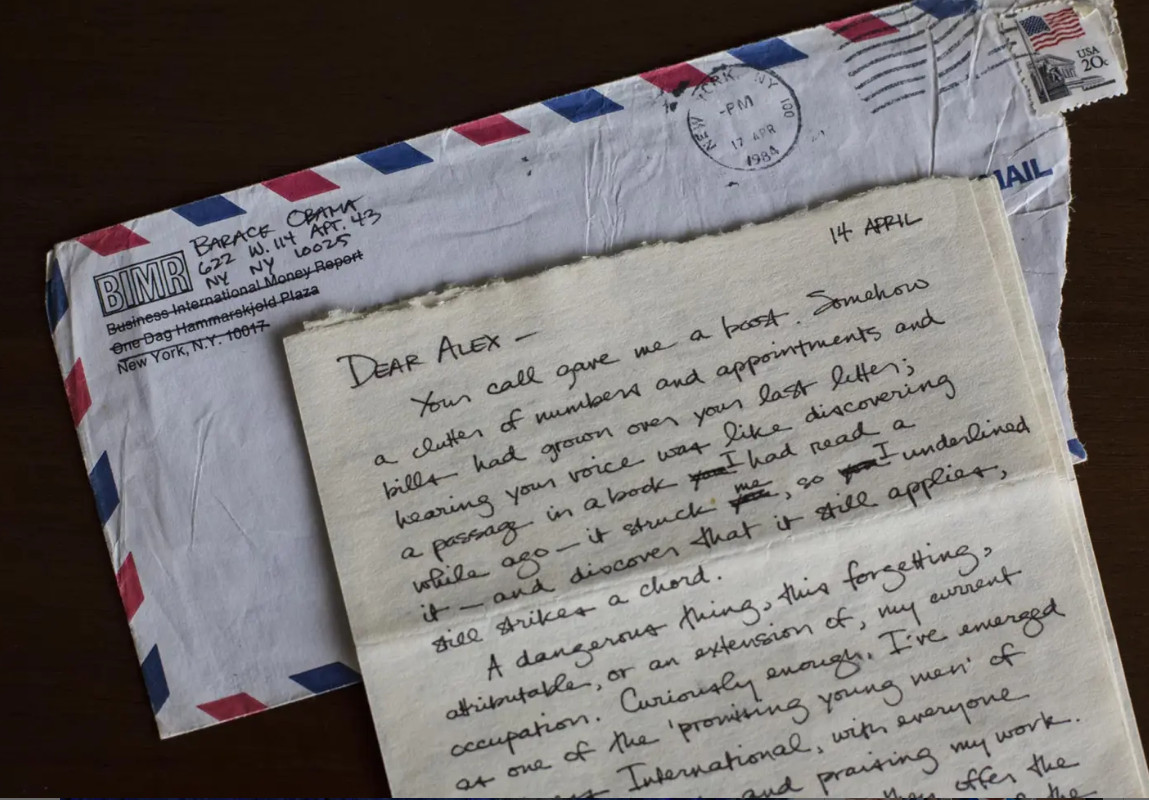 USA
20c
NEW YORK, NY 100
-PM
17 APR
1984
MAIL
BARACK OBAMA
622 W. 114 APT. 43
NY NY 10025
BIMR
Business International Money Report
One Dag Hammarskjold Plaza
New York, N.Y. 10017
14 APRIL
DEAR ALEX —
Your call gave me a boost. Somehow
a clutter of numbers and appointments and
bills had grown over your last letter;
hearing your voice was like discovering
a passage in a book I had read a
while ago — it struck me, so I underlined
it — and discover that it still applies,
still strikes a chord.
A dangerous thing, this forgetting,
attributable, or an extension of, my current
occupation. Curiously enough, I've emerged
as one of the 'promising young men' of
International, with everyone
and praising my work.
they offer the
the